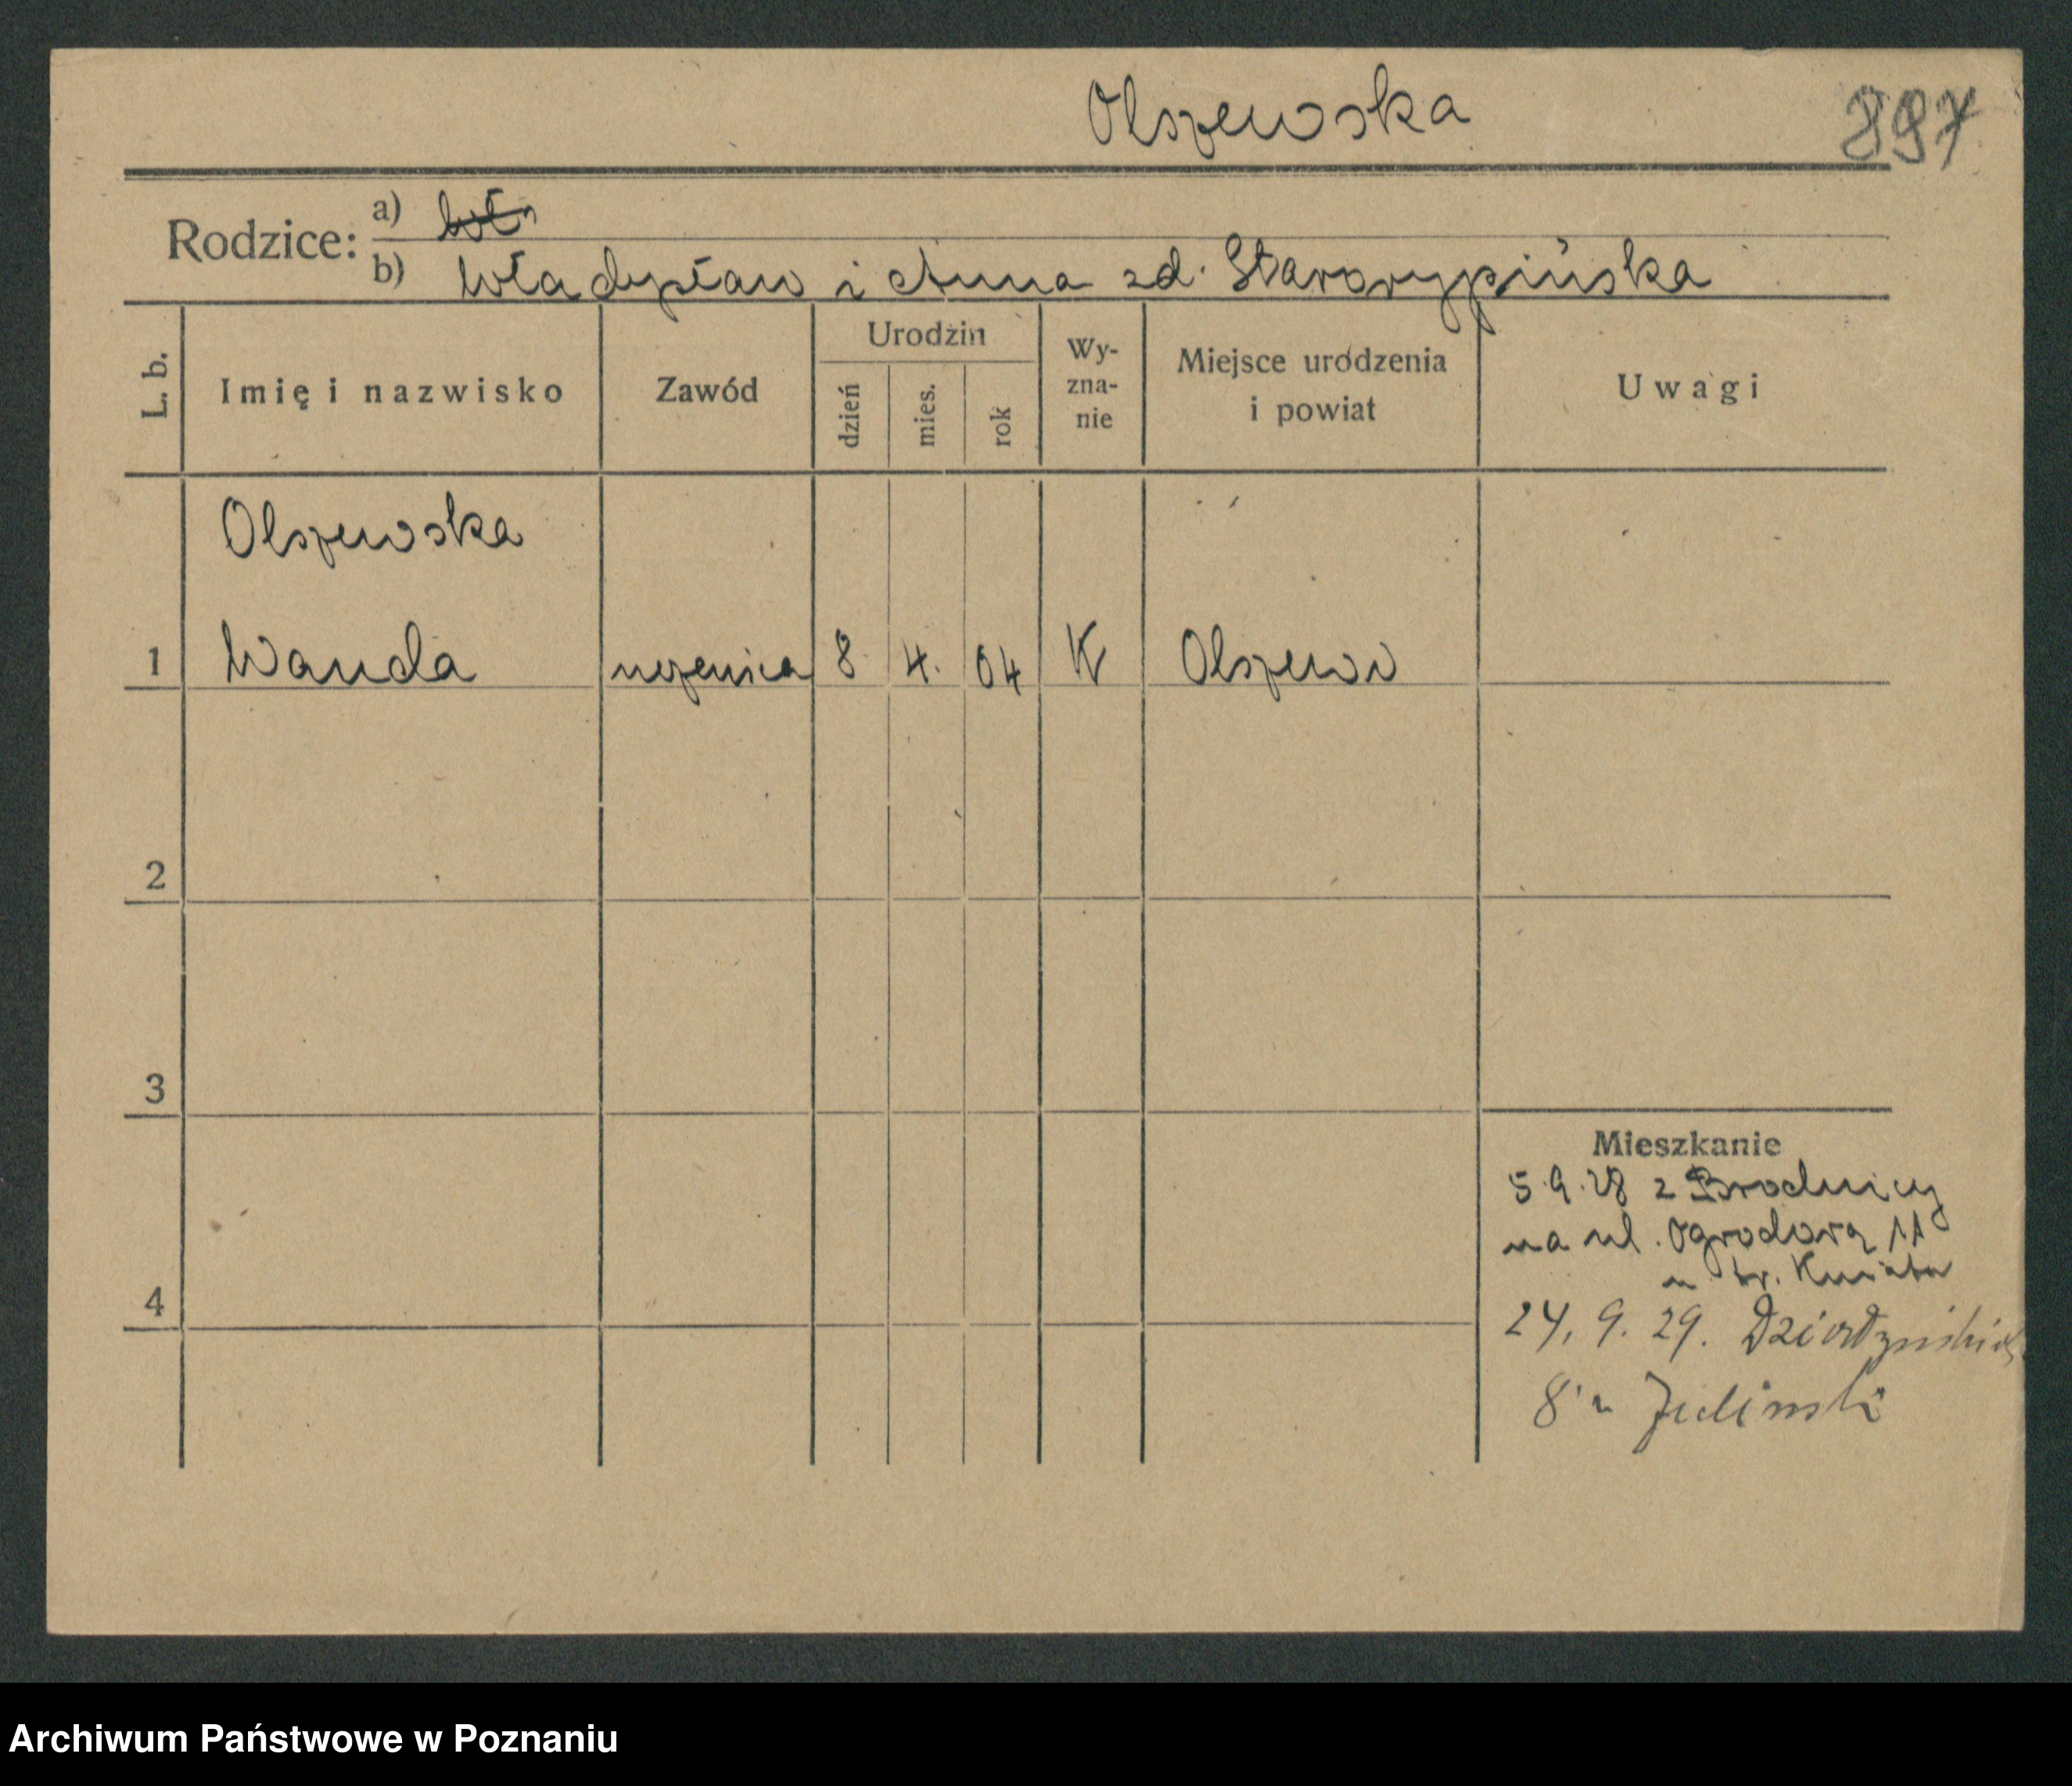 Olszewska 897
Rodzice: a) Wł.
b) Władysław i Anna zd. Starorypińska
L. b. Imię i nazwisko Zawód Urodzin dzień mies. rok Wy-zna-nie Miejsce urodzenia i powiat Uwagi
Olszewska
1 Wanda uczenica 8. 4. 04 K Olszewo
2
3
Mieszkanie
5.9.28 z Brodnicy
na ul. Ogrodową 11
u
4
24. 9. 29. Działyńskich
8 u
Archiwum Państwowe w Poznaniu